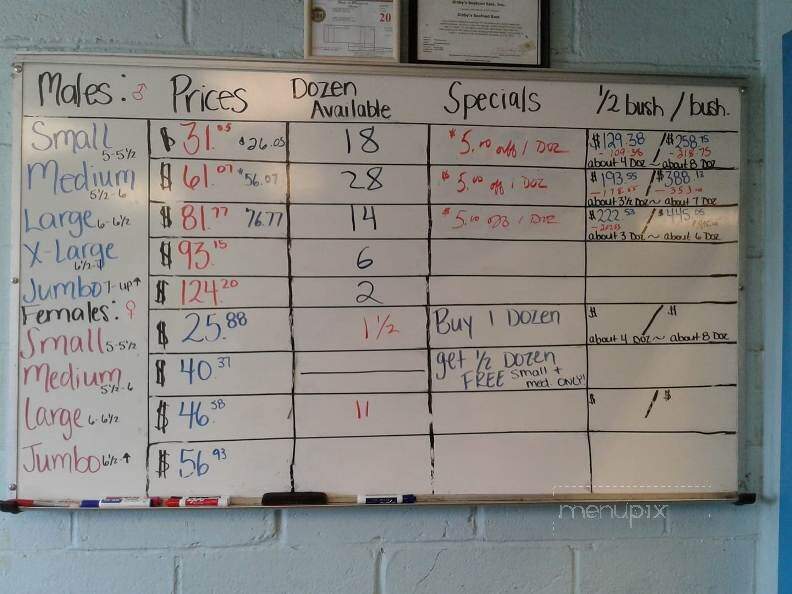 20
Males: ♂ Prices Dozen Available Specials 1/2 bush / bush.
Small 5-5½ $31.05 $26.05 18 $5.00 off 1 Doz $129.38 / $258.75
about 4 Doz ~ about 8 Doz
Medium 5½-6 $61.07 $56.07 28 $5.00 off 1 Doz $193.55 / $388.12
about 3½ Doz ~ about 7 Doz
Large 6-6½ $81.77 76.77 14 $5.00 off 1 Doz $222.53 / $445.05
about 3 Doz ~ about 6 Doz
X-Large $93.15 6
Jumbo 7-up↑ $124.20 2
Females: ♀
Small 5-5½ $25.88 1 1/2 Buy 1 Dozen $ / $
about 4 Doz ~ about 8 Doz
Medium 5½-6 $40.37 get ½ Dozen
FREE small + med. ONLY!
Large 6-6½ $46.58 11 $ / $
Jumbo 6½-↑ $56.93
menupix